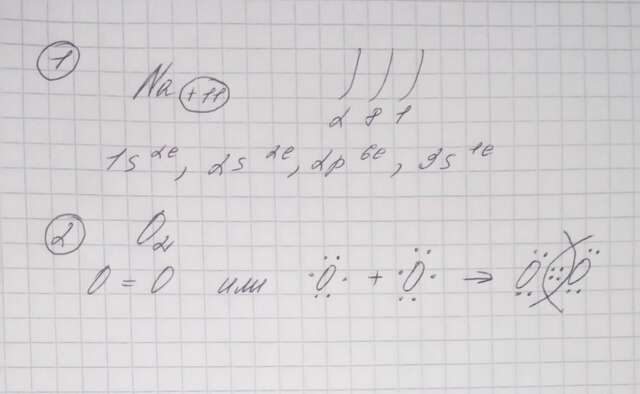 1
Na +11
2 8 1
1s^2e, 2s^2e, 2p^6e, 3s^1e
2 O₂
O = O или ·Ö· + ·Ö· → Ö::Ö